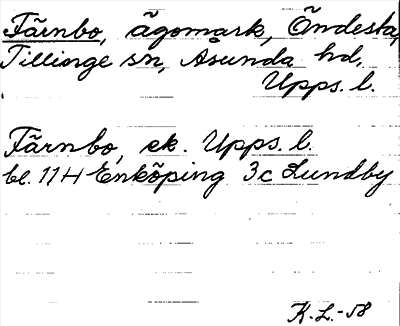 Färnbo, ägomark, Öndesta,
Tillinge sn, Åsunda hd,
Upps. l.
Färnbo, ek. Upps. l.
bl. 11H Enköping 3c Lundby
K.L.-58